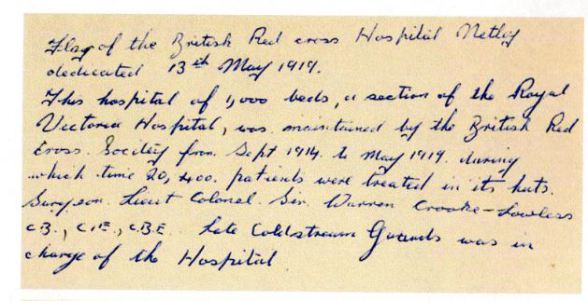 Flag of the British Red cross Hospital Netley
dedicated 13th May 1919.
This hospital of 1,000 beds, a section of the Royal
Victoria Hospital, was maintained by the British Red
Cross. Society from Sept 1914 to May 1919. during
which time 20,400. patients were treated in its huts.
Surgeon Lieut Colonel Sir Warren Crooke-Lawless
C.B., C.I.E., C.B.E. Late Coldstream Guards was in
charge of the Hospital